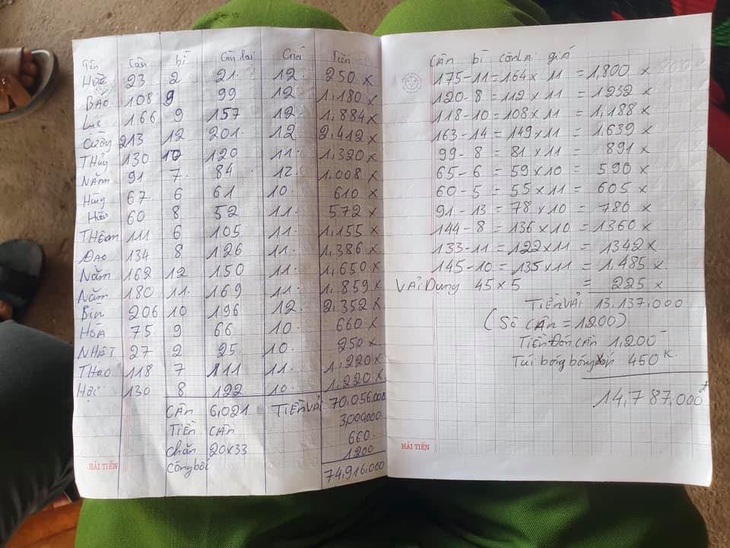 Tên cân bì Còn lại Giá Tiền
Học 23 2 21 12 250 x
BẢO 108 9 99 12 1,180 x
Lực 166 9 157 12 1,884 x
Cường 213 12 201 12 2,412 x
Thủy 130 10 120 11 1,320 x
NĂM 91 7 84 12 1,008 x
Hùng 67 6 61 10 610 x
60 8 52 11 572 x
Thơm 111 6 105 11 1,155 x
Đạo 134 8 126 11 1,386 x
Năm 162 12 150 11 1,650 x
Năm 180 11 169 11 1,859 x
Bin 206 10 196 12 2,352 x
HÒA 75 9 66 10 660 x
NHẬT 27 2 25 10 250 x
Thao 118 7 111 11 1,220 x
Hội 130 8 122 10 1,220 x
CÂN 6,021 TIỀN VẢI 70,056,000
TIỀN CÂN 3,000,000
chăn 20x33 660
Công bốc 1200
74,916,000
HẢI TIẾN
Cân bì cònlại giá
175-11=164x 11 = 1,800 x
120-8 = 112 x 11 = 1232 x
118-10=108x 11 = 1,188 x
163-14=149x11 = 1,639 x
99-8 = 81 x 11 = 891 x
65-6 = 59x10 = 590 x
60-5 = 55x11 = 605 x
91-13=78x10 = 780 x
144-8=136x10 = 1360 x
133-11=122x11 = 1342 x
145-10=135x11 = 1,485 x
VẢI Dung 45x5 = 225 x
TIỀN VẢI 13,137,000
(Số CÂN = 1200)
TIỀN CÂN 1,200
Túi bóng 450 K
14,787,000đ
HẢI TIẾN